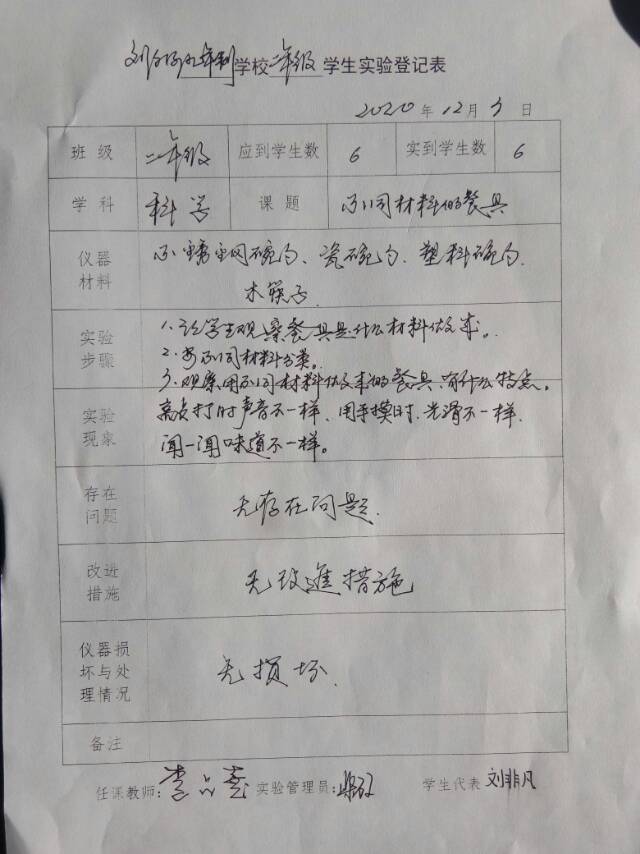 九年制学校二年级学生实验登记表
2020年12月3日
班级 二年级 应到学生数 6 实到学生数 6
学科 科学 课题 不同材料的餐具
仪器材料 不锈钢碗勺、瓷碗勺、塑料碗勺、
木筷子.
实验步骤 1.让学生观察餐具是什么材料做成。
2.按不同材料分类。
3.观察用不同材料做成的餐具,有什么特点。
实验现象 敲打时声音不一样,用手摸时,光滑不一样,
闻一闻味道不一样。
存在问题 无存在问题.
改进措施 无改進措施
仪器损坏与处理情况 无损坏.
备注
任课教师: 李 实验管理员: 学生代表 刘非凡